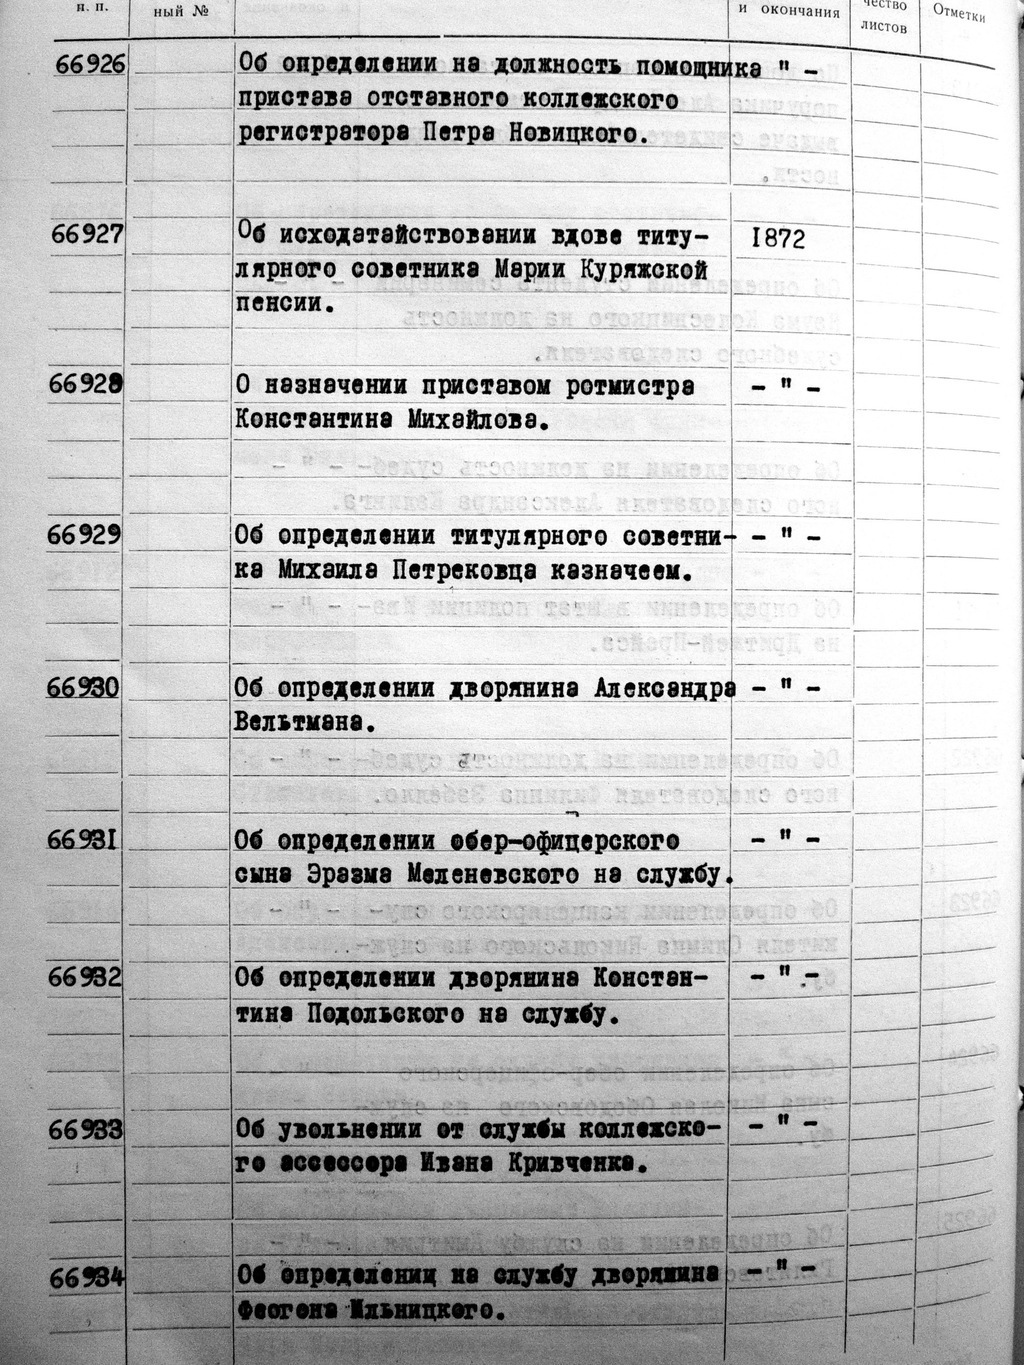 н. п.
ный №
и окончания
чество
листов
Отметки
66926 Об определении на должность помощника " -
пристава отставного коллежского
регистратора Петра Новицкого.
66927 Об исходатайствовании вдове титу- 1872
лярного советника Марии Куряжской
пенсии.
66928 О назначении приставом ротмистра - " -
Константина Михайлова.
66929 Об определении титулярного советни- - " -
ка Михаила Петрековца казначеем.
66930 Об определении дворянина Александра - " -
Вельтмана.
66931 Об определении обер-офицерского - " -
сына Эразма Меленевского на службу.
66932 Об определении дворянина Констан- - " -
тина Подольского на службу.
66933 Об увольнении от службы коллежско- - " -
го ассесора Ивана Кривченка.
66934 Об определении на службу дворянина - " -
Феогена Ильницкого.